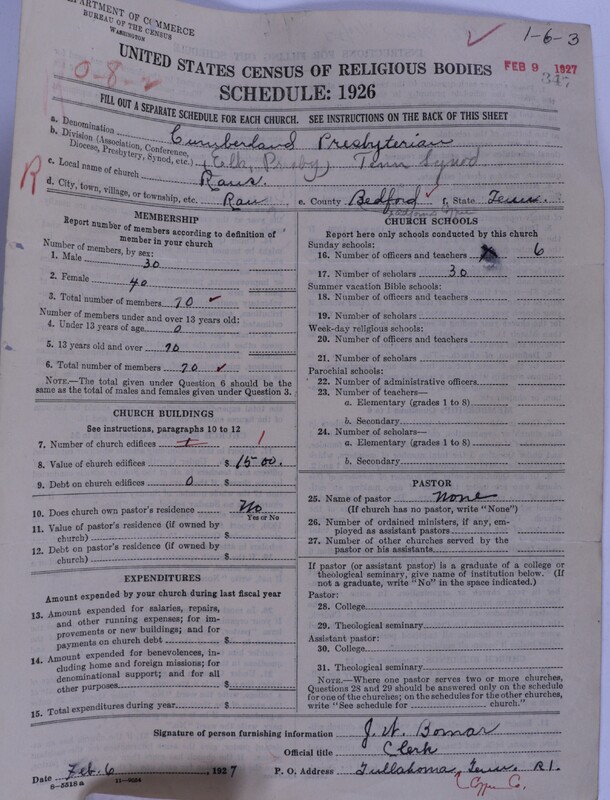 DEPARTMENT OF COMMERCE
BUREAU OF THE CENSUS
WASHINGTON
1-6-3
0-8-
FEB 9 1927
347
UNITED STATES CENSUS OF RELIGIOUS BODIES
SCHEDULE: 1926
FILL OUT A SEPARATE SCHEDULE FOR EACH CHURCH. SEE INSTRUCTIONS ON THE BACK OF THIS SHEET
a. Denomination Cumberland Presbyterian
b. Division (Association, Conference, Diocese, Presbytery, Synod, etc.) (Elk, Presby) Tenn Synod
c. Local name of church Raus.
R
d. City, town, village, or township, etc. Rau e. County Bedford ✓ f. State Tenn.
MEMBERSHIP
Report number of members according to definition of
member in your church
Number of members, by sex:
1. Male 30
2. Female 40
3. Total number of members 70 ✓
Number of members under and over 13 years old:
4. Under 13 years of age 0
5. 13 years old and over 70
6. Total number of members 70 ✓
NOTE.—The total given under Question 6 should be the
same as the total of males and females given under Question 3.
CHURCH BUILDINGS
See instructions, paragraphs 10 to 12
7. Number of church edifices 1 1
8. Value of church edifices $ 1500.
9. Debt on church edifices 0 $
10. Does church own pastor's residence? No
Yes or No
11. Value of pastor's residence (if owned by
church) $
12. Debt on pastor's residence (if owned by
church) $
EXPENDITURES
Amount expended by your church during last fiscal year
13. Amount expended for salaries, repairs,
and other running expenses; for im-
provements or new buildings; and for
payments on church debt $
14. Amount expended for benevolences, in-
cluding home and foreign missions; for
denominational support; and for all
other purposes $
15. Total expenditures during year $
CHURCH SCHOOLS
Report here only schools conducted by this church
Sunday schools:
16. Number of officers and teachers 6
17. Number of scholars 30
Summer vacation Bible schools:
18. Number of officers and teachers
19. Number of scholars
Week-day religious schools:
20. Number of officers and teachers
21. Number of scholars
Parochial schools:
22. Number of administrative officers
23. Number of teachers—
a. Elementary (grades 1 to 8)
b. Secondary
24. Number of scholars—
a. Elementary (grades 1 to 8)
b. Secondary
PASTOR
25. Name of pastor None
(If church has no pastor, write "None")
26. Number of ordained ministers, if any, em-
ployed as assistant pastors
27. Number of other churches served by the
pastor or his assistants
If pastor (or assistant pastor) is a graduate of a college or
theological seminary, give name of institution below. (If
not a graduate, write "No" in the space indicated.)
Pastor:
28. College
29. Theological seminary
Assistant pastor:
30. College
31. Theological seminary
NOTE.—Where one pastor serves two or more churches,
Questions 28 and 29 should be answered only on the schedule
for one of the churches; on the schedules for the other churches,
write "See schedule for church."
Signature of person furnishing information J. N. Bomar
Official title Clerk
Date Feb. 6, 1927 P. O. Address Tullahoma, Tenn. R1.
8-5516a 11-9024
Co.